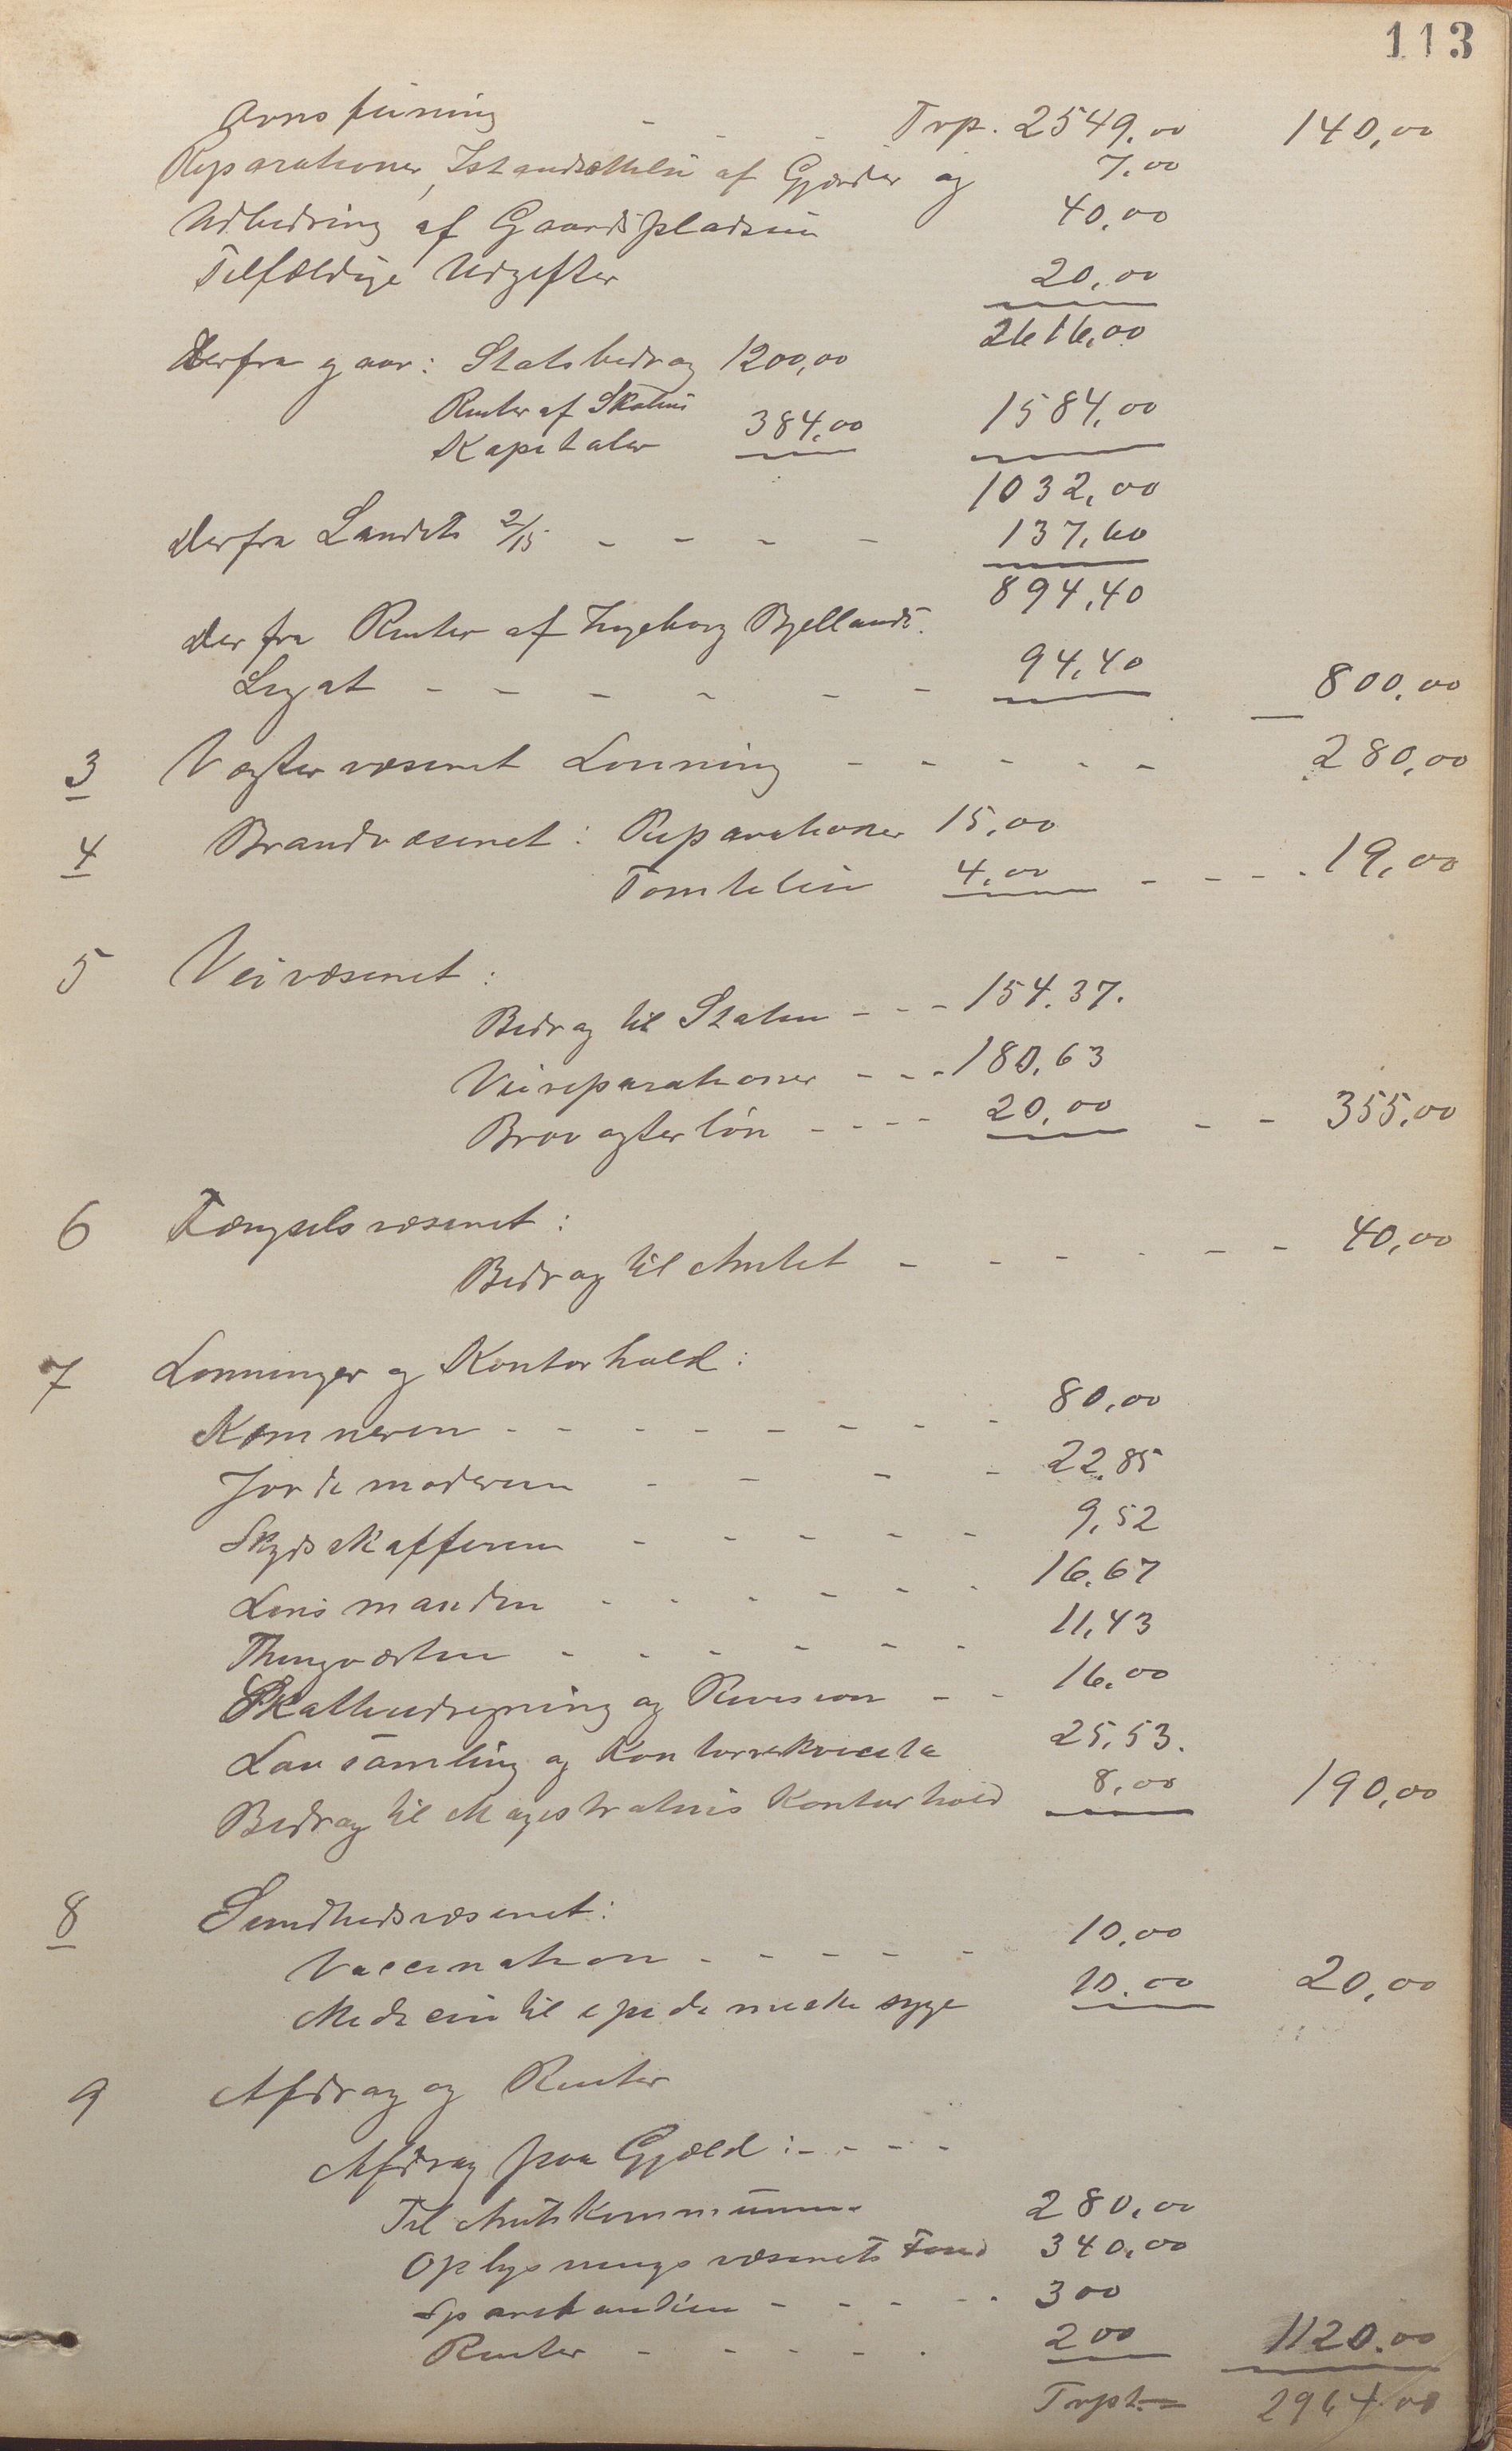 113
Trp. 2549,00 140,00
Ovnsfeining - - - 7,00
Reparationer, Istandsættelse af Gjerder og
Udbedring af Gaardspladsen 40,00
Tilfældige Udgifter 20,00
2616,00
Derfra gaar: Statsbidrag 1200,00
Renter af Skolens
Kapitaler 384,00 1584,00
1032,00
derfra Landets 2/15 - - - - 137,60
894,40
derfra Renter af Ingeborg Bjellands
Legat - - - - - - 94,40 800,00
3 Vægtervæsenet Lønning - - - - - 280,00
4 Brandvæsenet: Reparationer 15,00
Tomteleie 4,00 - - - - 19,00
5 Veivæsenet:
Bidrag til Staten - - - 154.37.
Veireparationer - - - 180,63
Brovagterløn - - - - 20,00 - - 355,00
6 Fængselsvæsenet:
Bidrag til Amtet - - - - - - 40,00
7 Lønninger og Kontorhold:
Kemneren - - - - - - - - 80,00
Jordemoderen - - - - 22,85
Skydsskafferen - - - - - 9,52
Lensmanden - - - - - - 16,67
Thingværten - - - - - - 11,43
Skatteudregning og Revision - - 16,00
Lovsamling og Kontorrekvisita 25,53.
Bidrag til Magistratens Kontorhold 8,00 190,00
8 Sundhedsvæsenet:
Vaccination - - - - - 10,00
Medicin til epidemiske syge 10.00 20,00
9 Afdrag og Renter
Afdrag paa Gjæld: - - - -
Til Amtskommunen 280,00
Oplysningsvæsenets Fond 340,00
Sparebanken - - - - - 300
Renter - - - - - 200 1120.00
Trpt. 2964.00